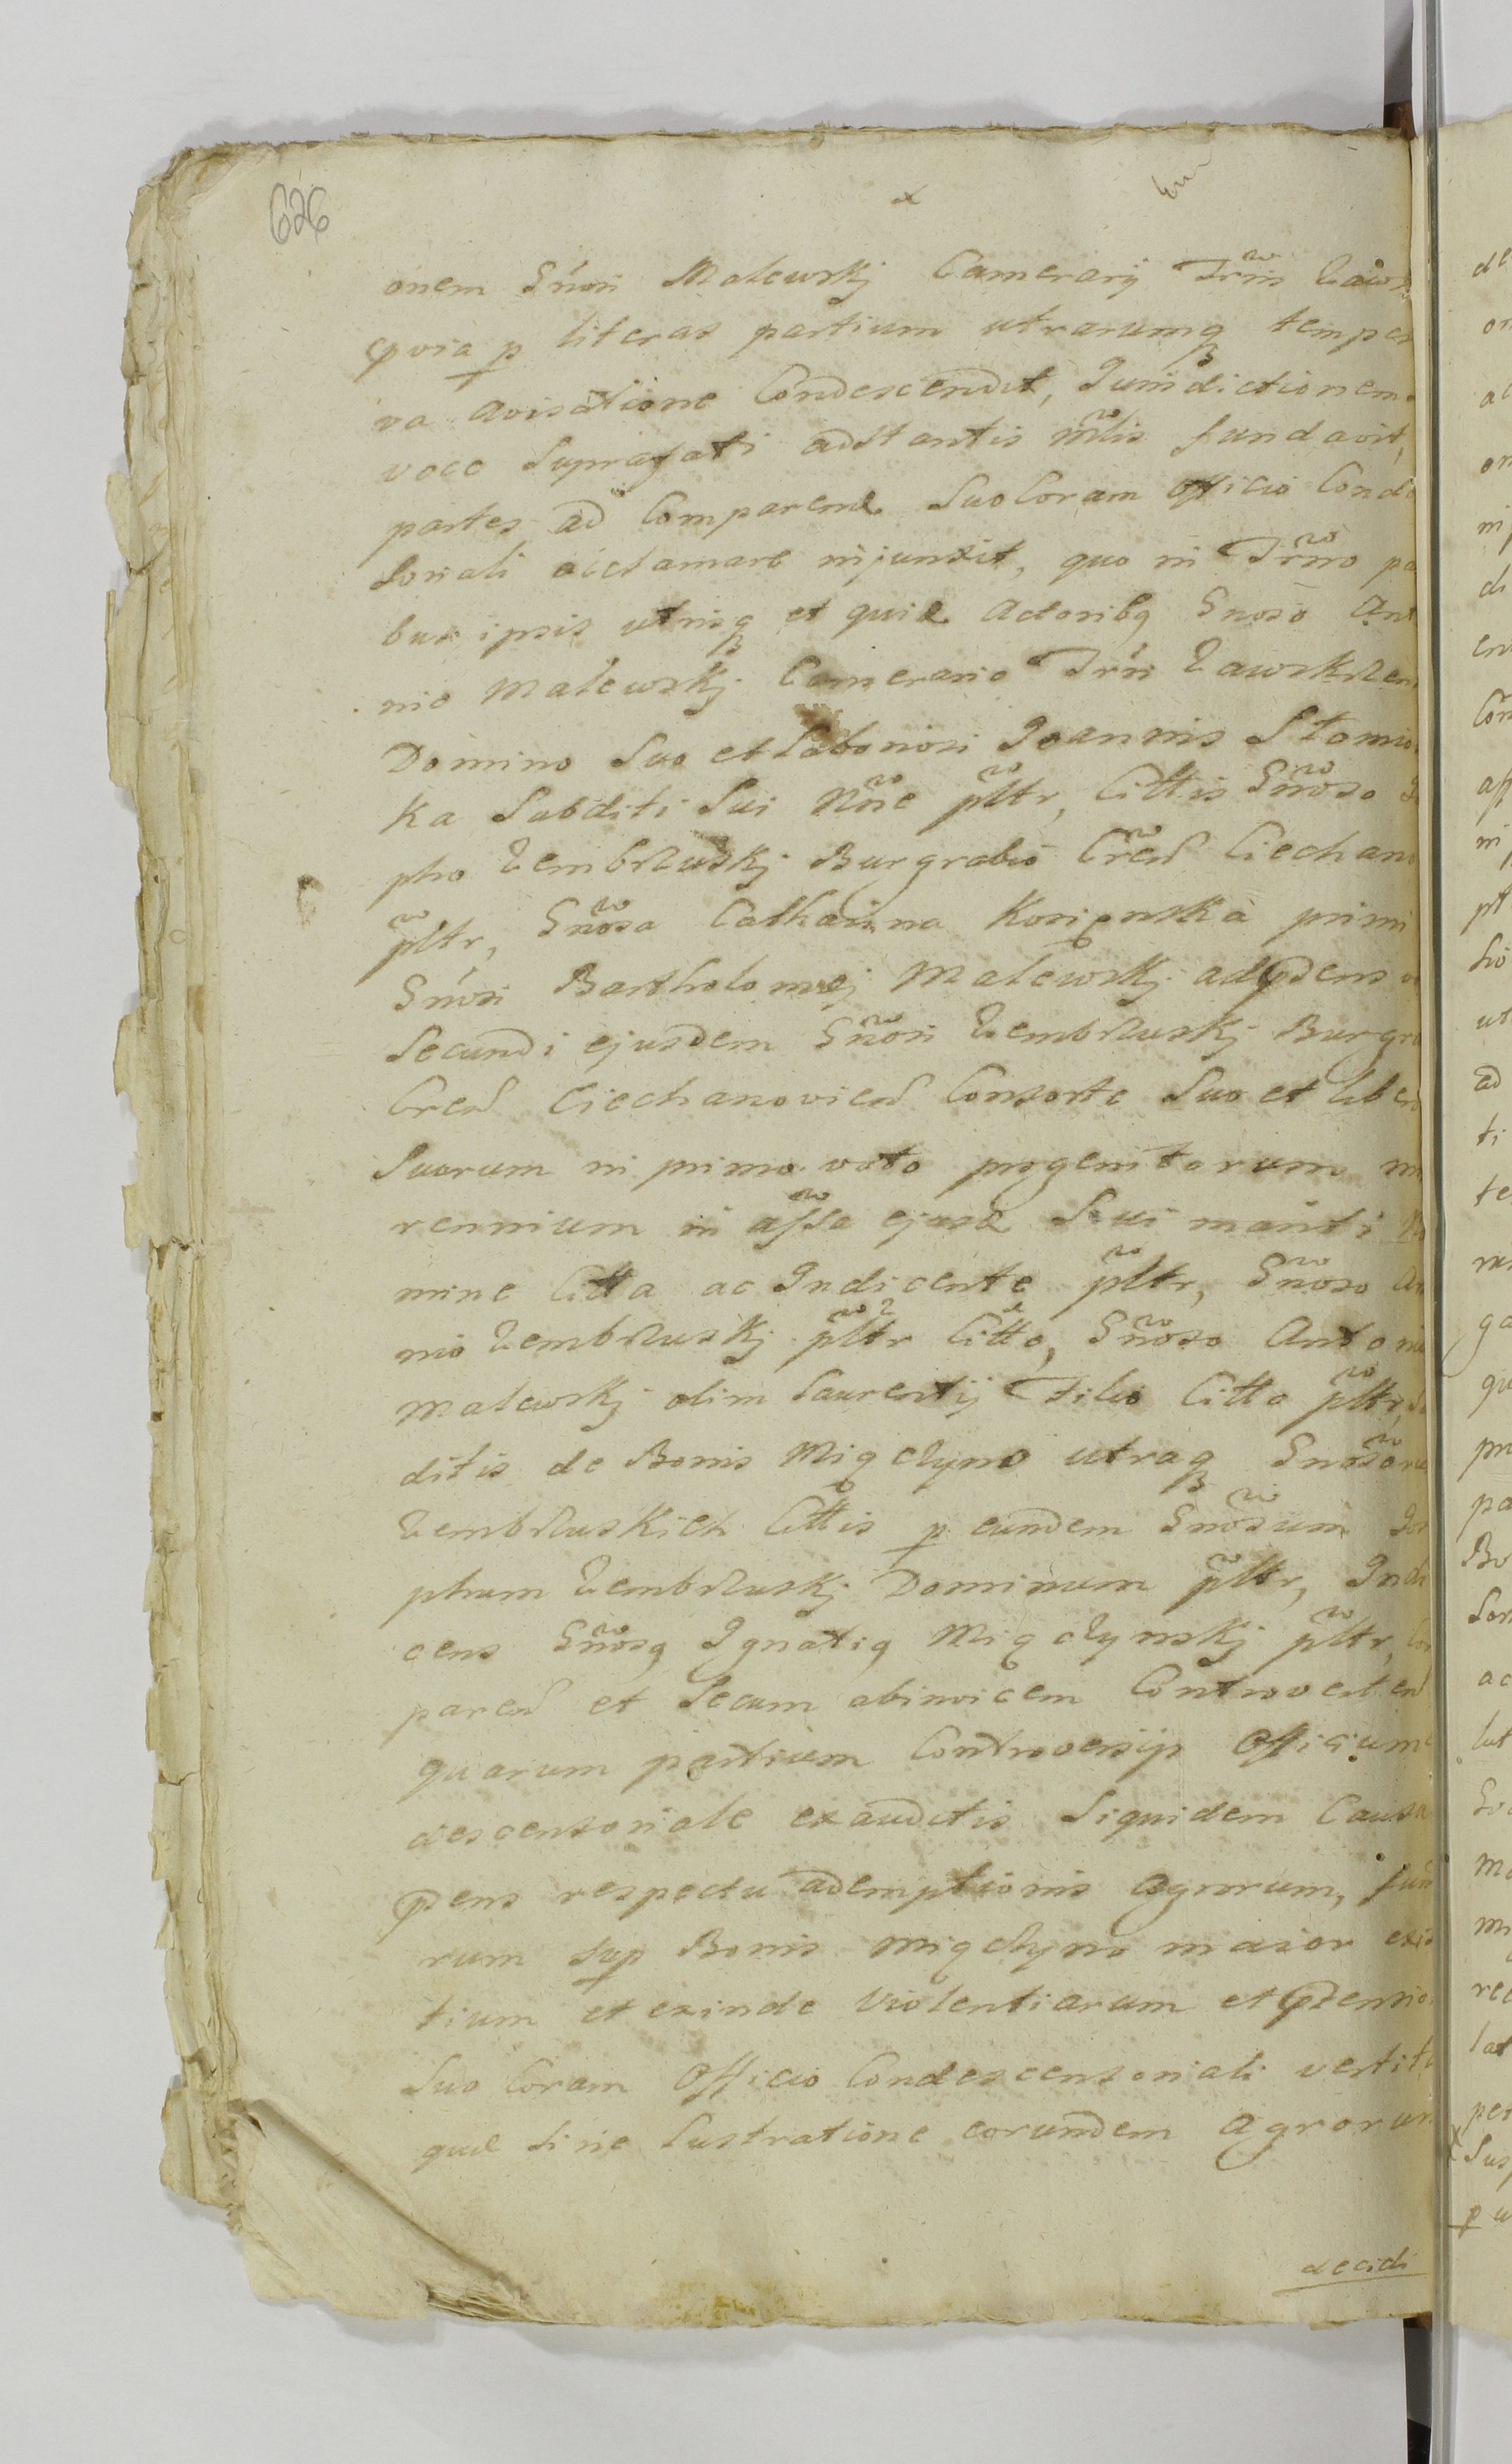 626
onem Gñosi Malewskj Camerarij Trrñs Zaws
qvia p literas partium utrarumq tempes
va avisatione Condescendit, Jurisdictionem
voce Suprafati adstantis Mrlis fundavit,
partes ad Comparend Suo Coram officio Conde
Soriali aiclamare injunxit, quo in Trrno pa
bus ipsis utrisq et quid Actoribq Gnoso Ant
nio Malewskj Camerario Trrñ Zawskrzen
Domino Suo et Laboriosi Joannis Słomio
ka Subditi Sui Nñe pltr, Cittis Gñoso Jo
pho Zembrzuskj Burgrabio Cřen Ciechano
pltr, Gñosa Catharina Kosięnska primi
Gñosi Bartholomej Malewskj adpdens
Secundi ejusdem Gñosi Zembrzuskj Burgra
Cren Ciechanovien Consorte Suo et libero
Suorum in primo voto progenitorum mi
rennium in assa ejusd Sui mariti No
mine Citta ac Indicente pltr, Gñoso An
nio Zembrzuskj pltr Citto, Gñoso Antonio
Malewskj olim Laurentij Filio Citto pltr, Su
ditis de Bonis Miączyno utraq Gnosoru
Zembrzuskich Cittis p eundem Gnosum Jos
phum Zembrzuskj Dominum pltr, Indi
cens Gñosq Ignatiq Miączynskj pltr, Com
paren et Secum abinvicem Controverten
quarum partium Controversijs Officium
descensoriale exauditis Siquidem Causa
pdens respectu ademptionis Agrorum, fun
rum Sup Bonis Miączyno maior exis
tium et exinde Violentiarum et pdensio
Suo Coram Officio Condescensoriali vertit
quæ Sine Lustratione eorundem Agrorum
decidi